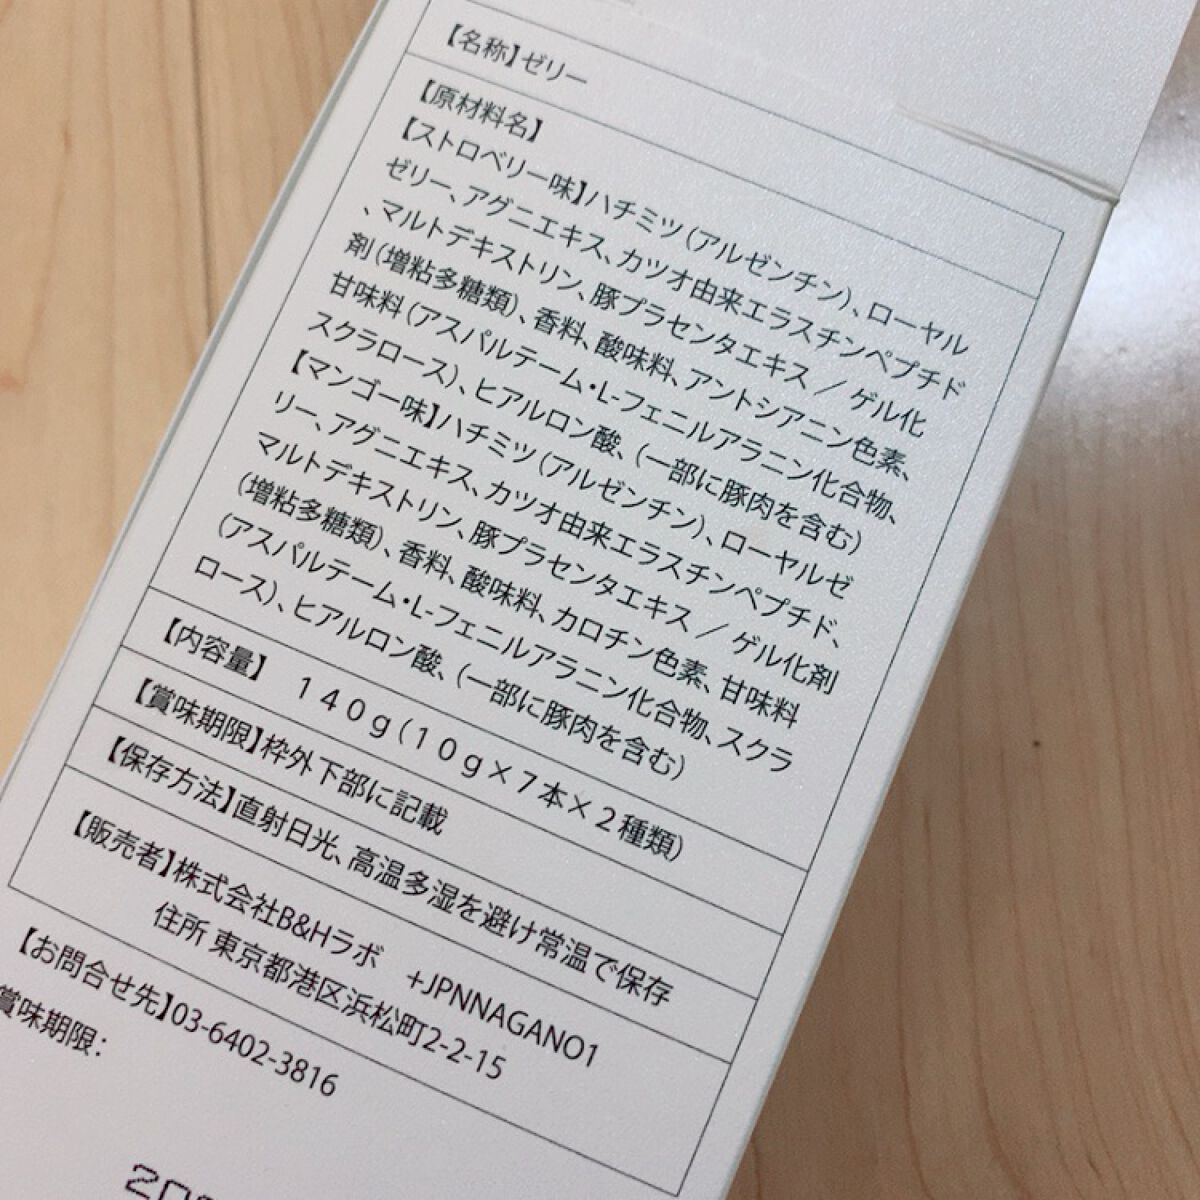 【名称】ゼリー
【原材料名】
【ストロベリー味】ハチミツ(アルゼンチン)、ローヤル
ゼリー、アグニエキス、カツオ由来エラスチンペプチド
、マルトデキストリン、豚プラセンタエキス/ゲル化
剤(増粘多糖類)、香料、酸味料、アントシアニン色素、
甘味料(アスパルテーム・L-フェニルアラニン化合物、
スクラロース)、ヒアルロン酸、(一部に豚肉を含む)
【マンゴー味】ハチミツ(アルゼンチン)、ローヤルゼ
リー、アグニエキス、カツオ由来エラスチンペプチド、
マルトデキストリン、豚プラセンタエキス/ゲル化剤
(増粘多糖類)、香料、酸味料、カロチン色素、甘味料
(アスパルテーム・L-フェニルアラニン化合物、スクラ
ロース)、ヒアルロン酸、(一部に豚肉を含む)
【内容量】 140g(10g×7本×2種類)
【賞味期限】枠外下部に記載
【保存方法】直射日光、高温多湿を避け常温で保存
【販売者】株式会社B&Hラボ +JPNNAGANO1
住所 東京都港区浜松町2-2-15
【お問合せ先】03-6402-3816
賞味期限: